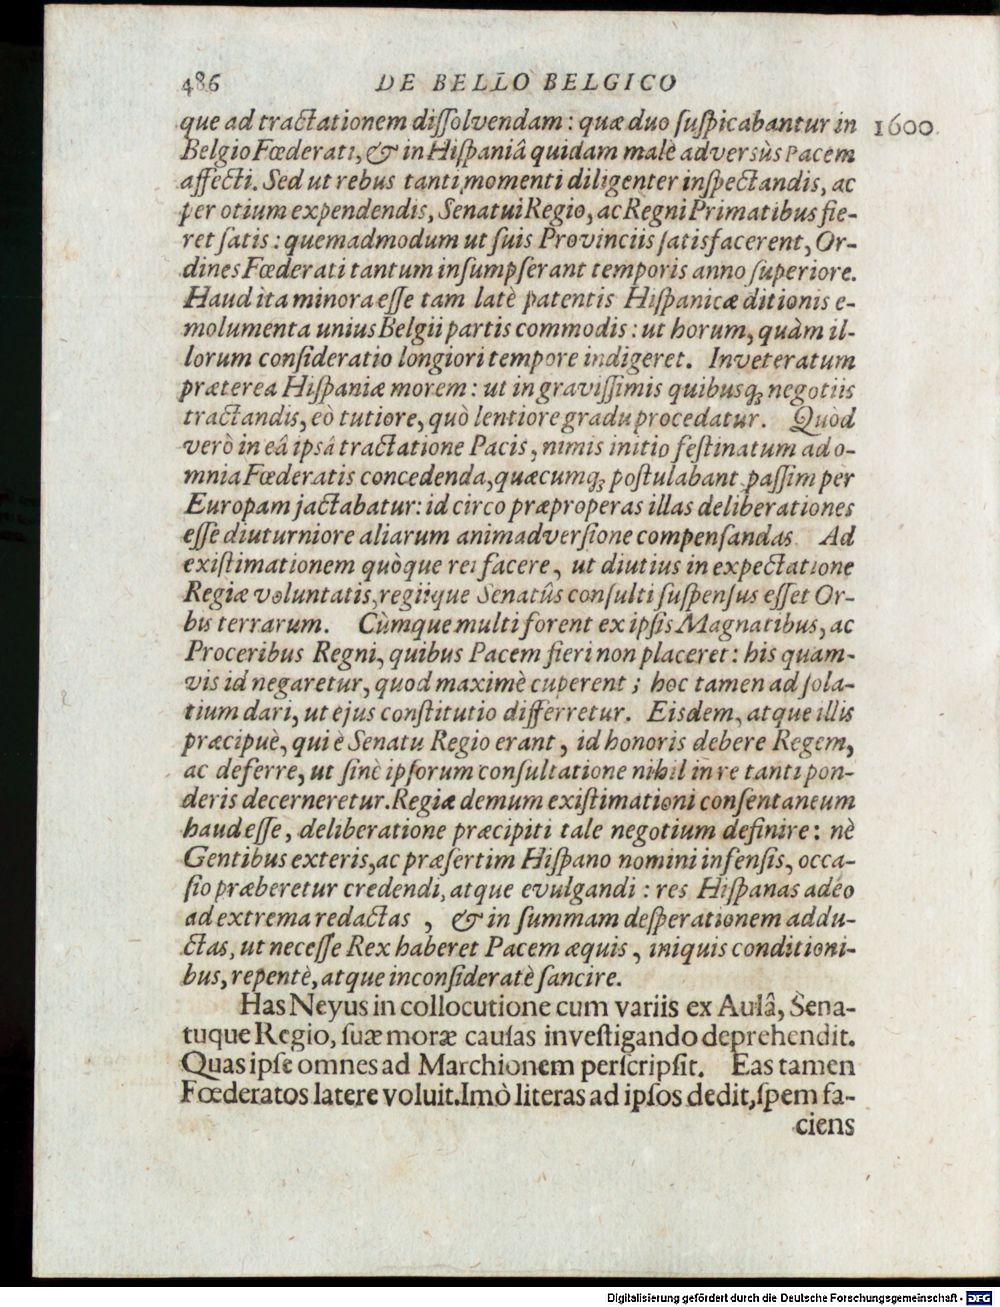 486 DE BELLO BELGICO
que ad tractationem diſſolvendam: quæ duo ſuſpicabantur in 1600.
Belgio Fœderati, & in Hiſpaniâ quidam malè adversùs Pacem
affecti. Sed ut rebus tanti momenti diligenter inſpectandis, ac
per otium expendendis, Senatui Regio, ac Regni Primatibus fie-
ret ſatis: quemadmodum ut ſuis Provinciis ſatisfacerent, Or-
dines Fœderati tantum inſumpſerant temporis anno ſuperiore.
Haud ita minora eſſe tam latè patentis Hiſpanicæ ditionis e-
molumenta unius Belgii partis commodis: ut horum, quàm il-
lorum conſideratio longiori tempore indigeret. Inveteratum
præterea Hiſpaniæ morem: ut in graviſſimis quibusq; negotiis
tractandis, eò tutiore, quò lentiore gradu procedatur. Quòd
verò in eâ ipsâ tractatione Pacis, nimis initio feſtinatum ad o-
mnia Fœderatis concedenda, quæcumq; poſtulabant paſſim per
Europam jactabatur: id circo præproperas illas deliberationes
eſſe diuturniore aliarum animadverſione compenſandas. Ad
exiſtimationem quòque rei facere, ut diutius in expectatione
Regiæ voluntatis, regiique Senatûs conſulti ſuſpenſus eſſet Or-
bis terrarum. Cùmque multi forent ex ipſis Magnatibus, ac
Proceribus Regni, quibus Pacem fieri non placeret: his quam-
vis id negaretur, quod maximè cuperent; hoc tamen ad ſola-
tium dari, ut ejus conſtitutio differretur. Eisdem, atque illis
præcipuè, qui è Senatu Regio erant, id honoris debere Regem,
ac deferre, ut ſine ipſorum conſultatione nihil in re tanti pon-
deris decerneretur. Regiæ demum exiſtimationi conſentaneum
haud eſſe, deliberatione præcipiti tale negotium definire: nè
Gentibus exteris, ac præſertim Hiſpano nomini infenſis, occa-
ſio præberetur credendi, atque evulgandi: res Hiſpanas adeo
ad extrema redactas, & in ſummam deſperationem addu-
ctas, ut neceſſe Rex haberet Pacem æquis, iniquis conditioni-
bus, repentè, atque inconſideratè ſancire.
Has Neyus in collocutione cum variis ex Aulâ, Sena-
tuque Regio, ſuæ moræ cauſas inveſtigando deprehendit.
Quas ipſe omnes ad Marchionem perſcripſit. Eas tamen
Fœderatos latere voluit. Imò literas ad ipſos dedit, ſpem fa-
ciens
Digitalisierung gefördert durch die Deutsche Forschungsgemeinschaft - DFG